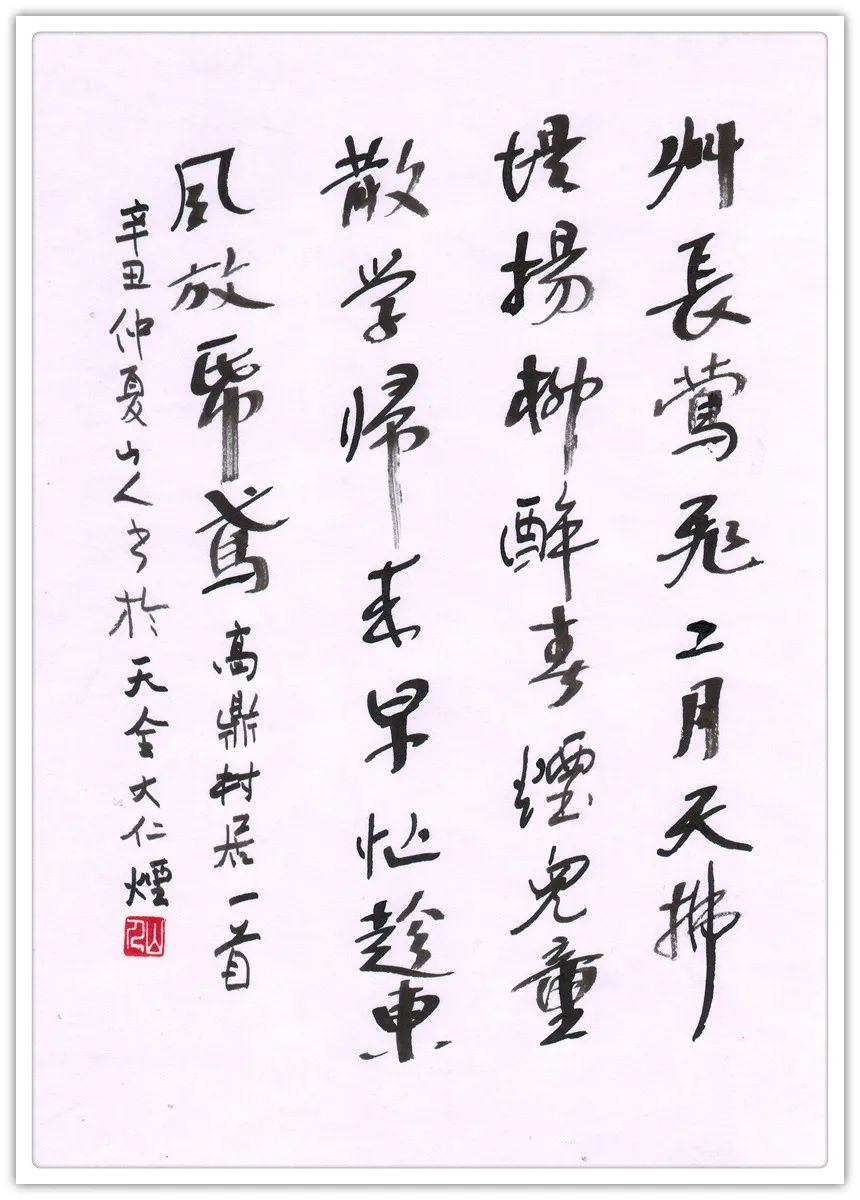 艸長鶯飛二月天拂
堤揚柳醉春煙兒童
散学帰来早忙趁東
風放帋鳶高鼎村居一首
辛丑仲夏山人书於天全大仁煙
山人